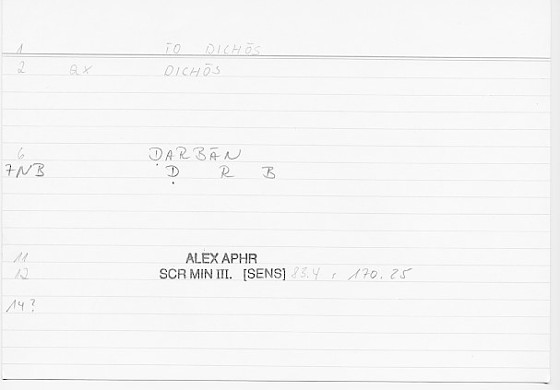 1 TO DICHŌS
2 2X DICHŌS
6 ḌARBĀN
7NB Ḍ R B
11 ALEX APHR
12 SCR MIN III. [SENS] 83.4, 170.25
14?